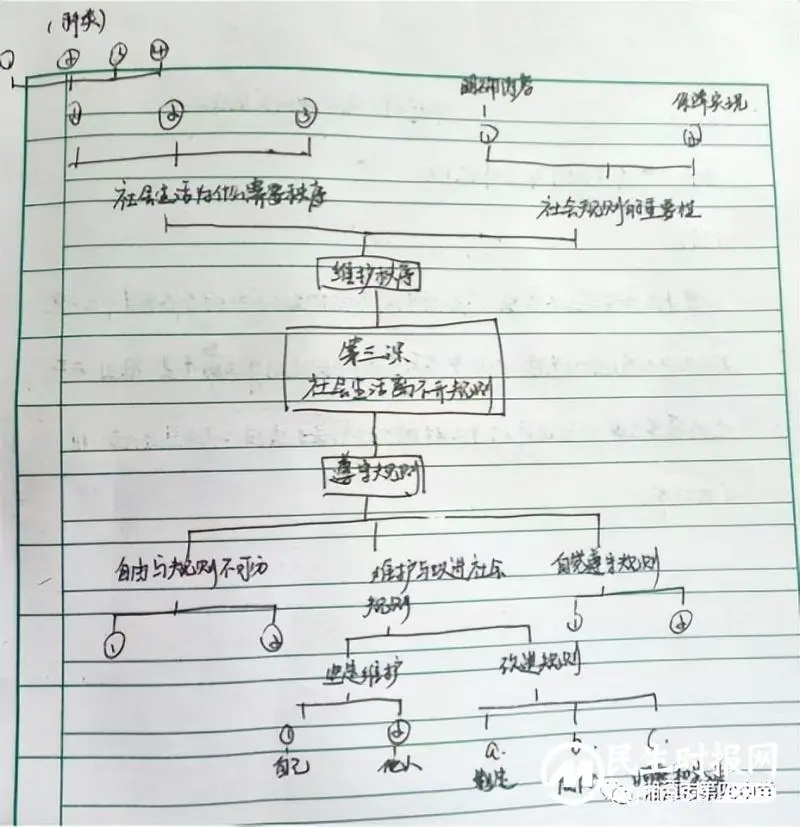 (种类)
① ② ③ ④
明确内容 保障实现
① ② ③ ① ②
社会生活为什么需要秩序 社会规则的重要性
维护秩序
第三课
社会生活离不开规则
遵守规则
自由与规则不可分 维护与改进社会 自觉遵守规则
规则
① ② ① ②
坚定维护 改进规则
① ② a. b. c.
自己 他人
民生时报网